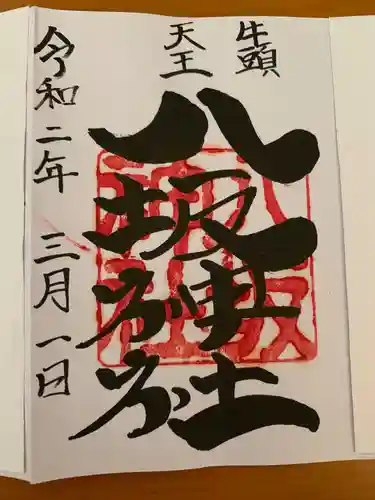 牛頭
天王
八坂神社
令和二年 三月一日